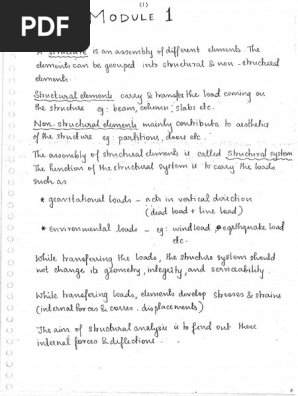 PDF
(1)
MODULE 1
A structure is an assembly of different elements. The
elements can be grouped into structural & non-structural
elements.
Structural elements carry & transfer the load coming on
the structure eg: beam, column, slabs etc.
Non-structural elements mainly contributo to aesthetics
of the structure eg: partitions, doors etc.
The assembly of structural elements is called structural system.
The function of the structural system is to carry the loads
such as
* gravitational loads - acts in vertical direction
(dead load + live load)
* environmental loads - eg: windload, earthquake load
etc.
While transferring the loads, the structure system should
not change its geometry, integrity, and serviceability.
While transfering loads, elements develop stresses & strains
(internal forces & corres. displacements)
The aim of structural analysis is to find out these
internal forces & deflections.